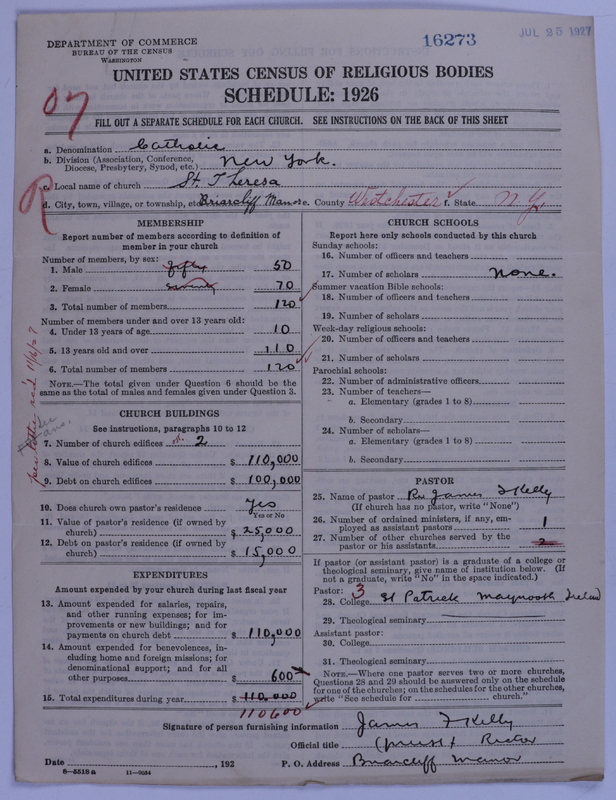 DEPARTMENT OF COMMERCE
BUREAU OF THE CENSUS
WASHINGTON
16273
JUL 25 1927
UNITED STATES CENSUS OF RELIGIOUS BODIES
SCHEDULE: 1926
07
FILL OUT A SEPARATE SCHEDULE FOR EACH CHURCH. SEE INSTRUCTIONS ON THE BACK OF THIS SHEET
a. Denomination Catholic
b. Division (Association, Conference, Diocese, Presbytery, Synod, etc.) New York.
c. Local name of church St. Theresa
d. City, town, village, or township, etc. Briarcliff Manor e. County Westchester f. State N.Y.
R
MEMBERSHIP
Report number of members according to definition of
member in your church
Number of members, by sex:
1. Male fifty 50
2. Female seventy 70
3. Total number of members 120
Number of members under and over 13 years old:
4. Under 13 years of age 10
5. 13 years old and over 110
6. Total number of members 120
NOTE.—The total given under Question 6 should be the
same as the total of males and females given under Question 3.
See letter rec'd
CHURCH BUILDINGS
See instructions, paragraphs 10 to 12
7. Number of church edifices 2
8. Value of church edifices $ 110,000
9. Debt on church edifices $ 100,000
10. Does church own pastor's residence Yes
Yes or No
11. Value of pastor's residence (if owned by
church) $ 25,000
12. Debt on pastor's residence (if owned by
church) $ 15,000
EXPENDITURES
Amount expended by your church during last fiscal year
13. Amount expended for salaries, repairs,
and other running expenses; for im-
provements or new buildings; and for
payments on church debt $ 110,000
14. Amount expended for benevolences, in-
cluding home and foreign missions; for
denominational support; and for all
other purposes $ 600
15. Total expenditures during year $ 110,000
110600
CHURCH SCHOOLS
Report here only schools conducted by this church
Sunday schools:
16. Number of officers and teachers
17. Number of scholars none.
Summer vacation Bible schools:
18. Number of officers and teachers
19. Number of scholars
Week-day religious schools:
20. Number of officers and teachers
21. Number of scholars
Parochial schools:
22. Number of administrative officers
23. Number of teachers—
a. Elementary (grades 1 to 8)
b. Secondary
24. Number of scholars—
a. Elementary (grades 1 to 8)
b. Secondary
PASTOR
25. Name of pastor Rev James F Kelly
(If church has no pastor, write "None")
26. Number of ordained ministers, if any, em-
ployed as assistant pastors 1
27. Number of other churches served by the
pastor or his assistants 2
If pastor (or assistant pastor) is a graduate of a college or
theological seminary, give name of institution below. (If
not a graduate, write "No" in the space indicated.)
Pastor: 3
28. College St Patrick Maynooth Ireland
29. Theological seminary
Assistant pastor:
30. College
31. Theological seminary
NOTE.—Where one pastor serves two or more churches,
Questions 28 and 29 should be answered only on the schedule
for one of the churches; on the schedules for the other churches,
write "See schedule for church."
Signature of person furnishing information James F Kelly
Official title (priest) Rector
Date , 192 P. O. Address Briarcliff Manor
8-5518 a 11-9054